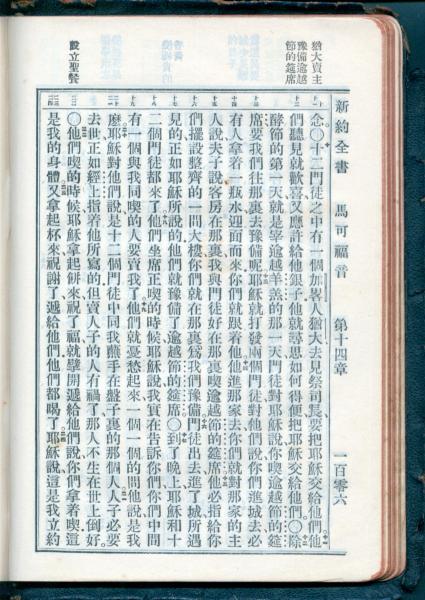 新約全書　馬可福音　第十四章　一百零六
猶大賣主
豫備逾越
節的筵席
設立聖餐
念○十二門徒之中有一個加畧人猶大去見祭司長要把耶穌交給他們他
們聽見就歡喜又應許給他銀子他就尋思如何得便把耶穌交給他們○除
酵節的第一天就是宰逾越羊羔的那一天門徒對耶穌說你喫逾越節的筵
席要我們往那裏去豫備呢耶穌就打發兩個門徒對他們說你們進城去必
有人拿着一瓶水迎面而來你們就跟着他他進那家去你們就對那家的主
人說夫子說客房在那裏我與門徒好在那裏喫逾越節的筵席他必指給你
們擺設整齊的一間大樓你們就在那裏爲我們豫備門徒出去進了城所遇
見的正如耶穌所說的他們就豫備了逾越節的筵席○到了晚上耶穌和十
二個門徒都來了他們坐席正喫的時候耶穌說我實在告訴你們你們中間
有一個與我同喫的人要賣我了他們就憂愁起來一個一個的問他說是我
麽耶穌對他們說是十二個門徒中同我蘸手在盤子裏的那個人人子必要
去世正如經上指着他所寫的但賣人子的人有禍了那人不生在世上倒好
○他們喫的時候耶穌拿起餅來祝了福就擘開遞給他們說你們拿着喫這
是我的身體又拿起杯來祝謝了遞給他們他們都喝了耶穌說這是我立約